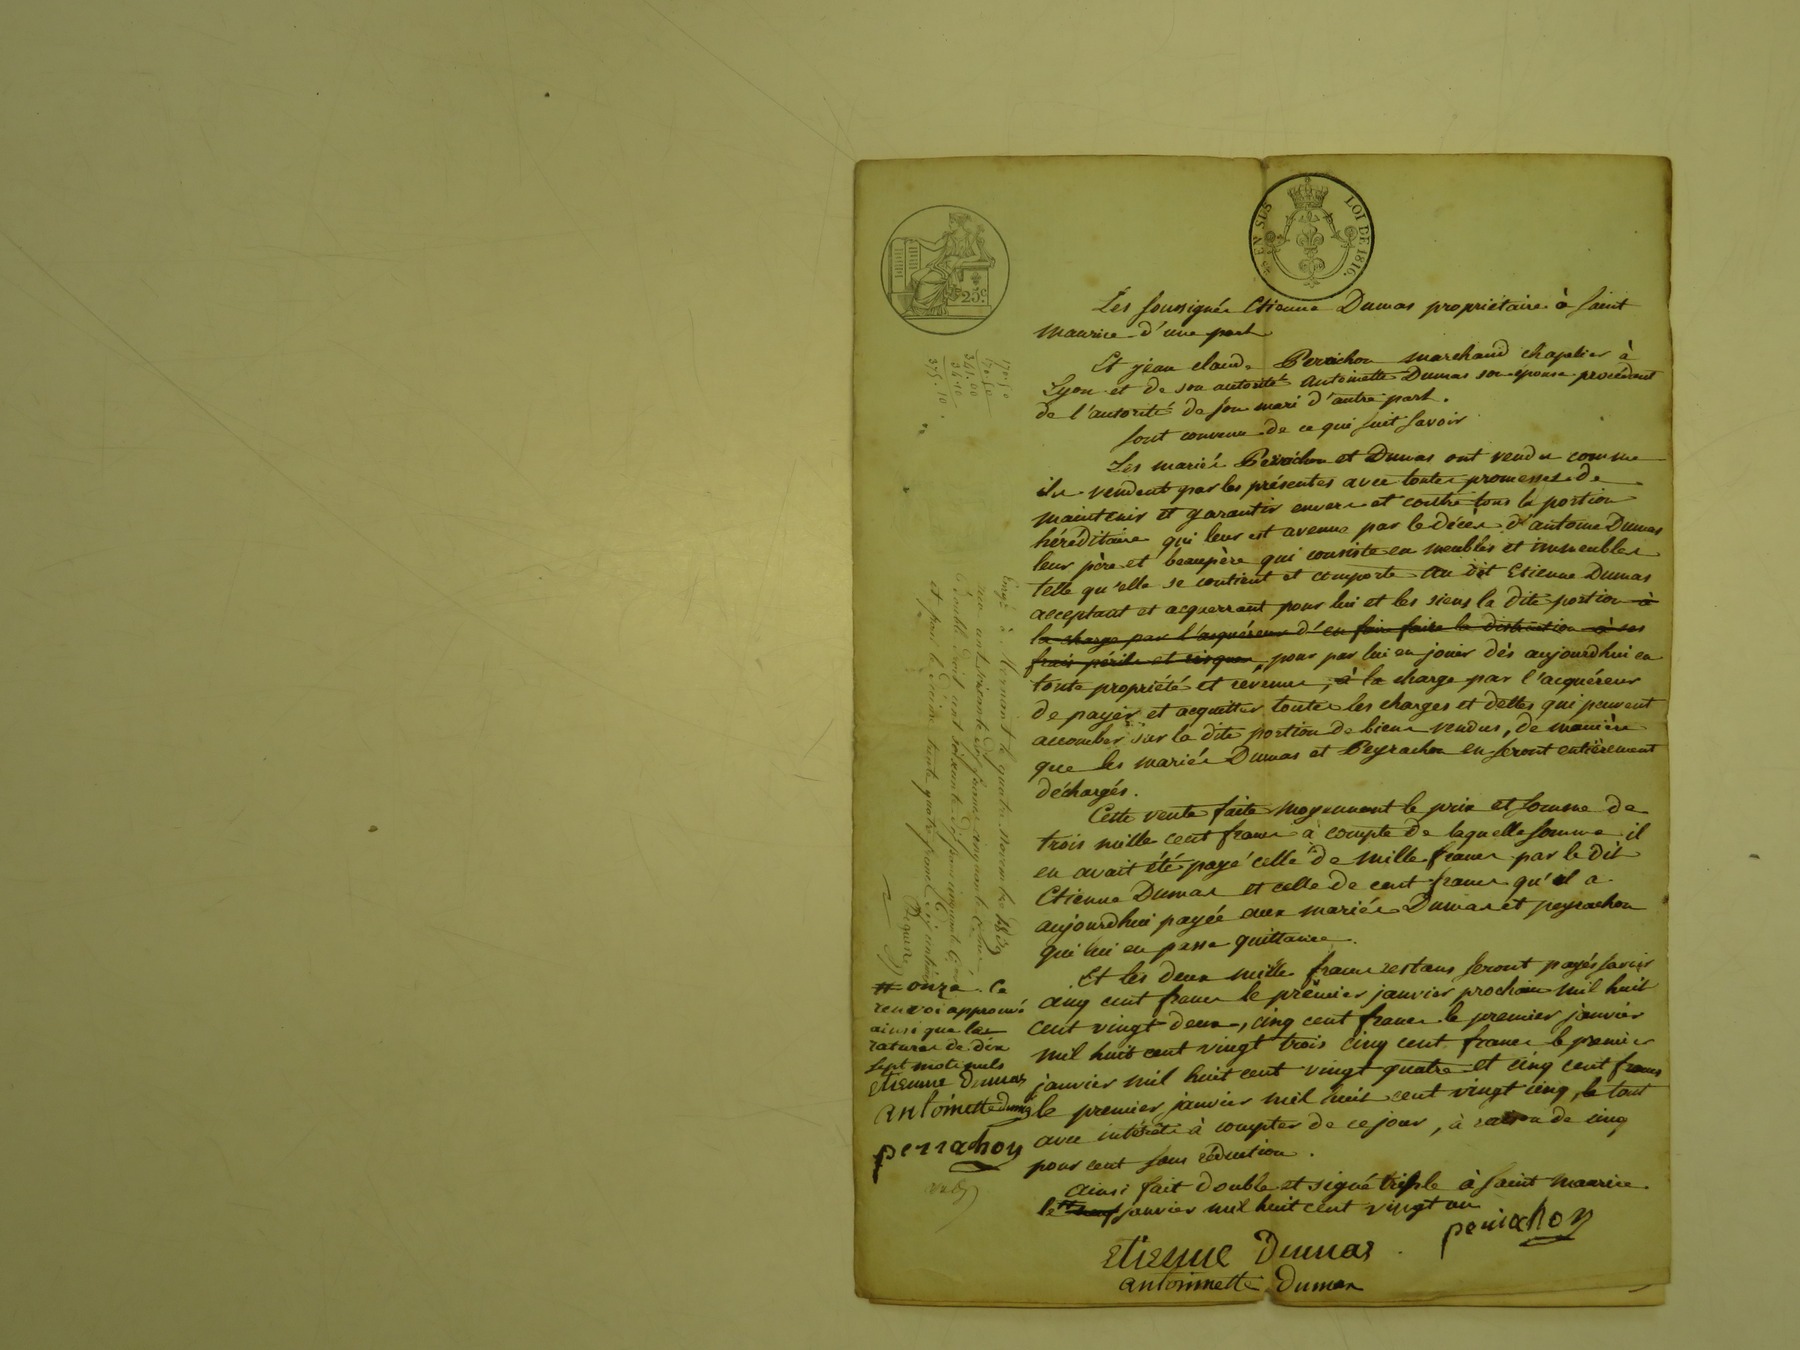 25 EN SUS
LOI DE 1816.
25c.
Les soussignés Etienne Dumas propriétaire à Saint
Maurice d'une part
Et jean claude Perrichon marchand chapelier à
Lyon et de son autorité antoinette Dumas son épouse procédant
de l'autorité de son mari d'autre part.
sont convenu de ce qui suit savoir
Les mariés Perrichon et Dumas ont vendu comme
ils vendent par les présentes avec toutes promesses de
maintenir et garantir envers et contre tous la portion
héréditaire qui leur est avenue par le décès d'antoine Dumas
leur père et beaupère qui consiste en meubles et immeubles
telle qu'elle se contient et comporte au dit Etienne Dumas
acceptant et acquerrant pour lui et les siens la dite portion à
la charge par l'acquéreur d'en faire faire la distraction à ses
frais périls et risques, pour par lui en jouir dès aujourdhui en
toute propriété et révenus, à la charge par l'acquéreur
de payer et acquitter toutes les charges et dettes qui peuvent
accomber sur la dite portion de biens vendus, de manière
que les mariés Dumas et Peyrachon en seront entièrement
déchargés.
Cette vente faite moyennant le prix et somme de
trois mille cent francs à compte de laquelle somme il
en avait été payé celle de mille francs par le dit
Etienne Dumas et celle de cent francs qu'il a
aujourdhui payée aux mariés Dumas et peyrachon
qui lui en passe quittance.
Et les deux mille francs restans seront payés savoir
cinq cent francs le premier janvier prochain mil huit
cent vingt deux, cinq cent francs le premier janvier
mil huit cent vingt trois cinq cent francs le premier
janvier mil huit cent vingt quatre et cinq cent francs
le premier janvier mil huit cent vingt cinq, le tout
avec intérêts à compter de ce jour, à raison de cinq
pour cent sans réduction.
ainsi fait double et signé triple à Saint Maurice
le # neuf janvier mil huit cent vingt un
perrachon
Etienne Dumas
antoinette Dumas
170.50
170.50
341.00
34.10
375.10.
Enrg. à Mornant le quatre novembre 1839
cent soixante dix francs cinquante cmes
double droit cent soixante dix francs cinquante cmes
et pour le dixième trente quatre francs dix centimes
# onze. Ce
renvoi approuvé
ainsi que les
ratures de dix
sept mots nuls
etienne Dumas
antoinette dumas
perrachon